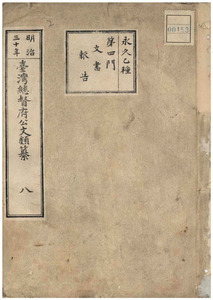 永久乙種
第四門
文書
報告
明治
三十年
臺灣總督府公文類纂
八